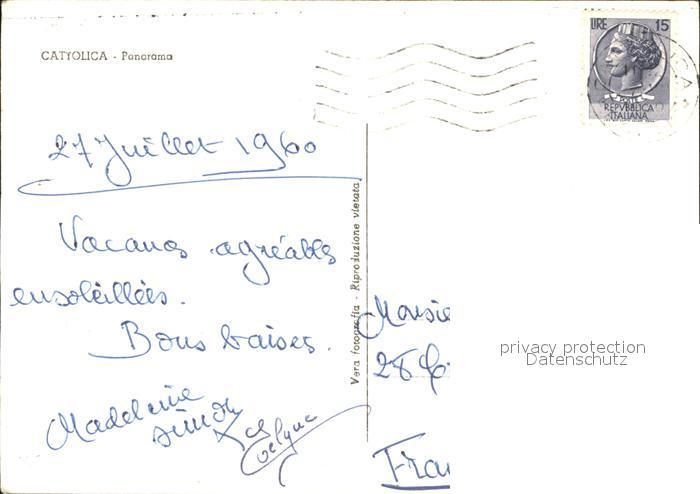 CATTOLICA - Panorama
LIRE 15
POSTE
REPVBBLICA
ITALIANA
27 Juillet 1960
Vacances agréables
ensoleillées.
Bons baises.
Madeleine
Simon
Jocelyne
Vera fotografia - Riproduzione vietata
Monsie
28
Fran
privacy protection
Datenschutz